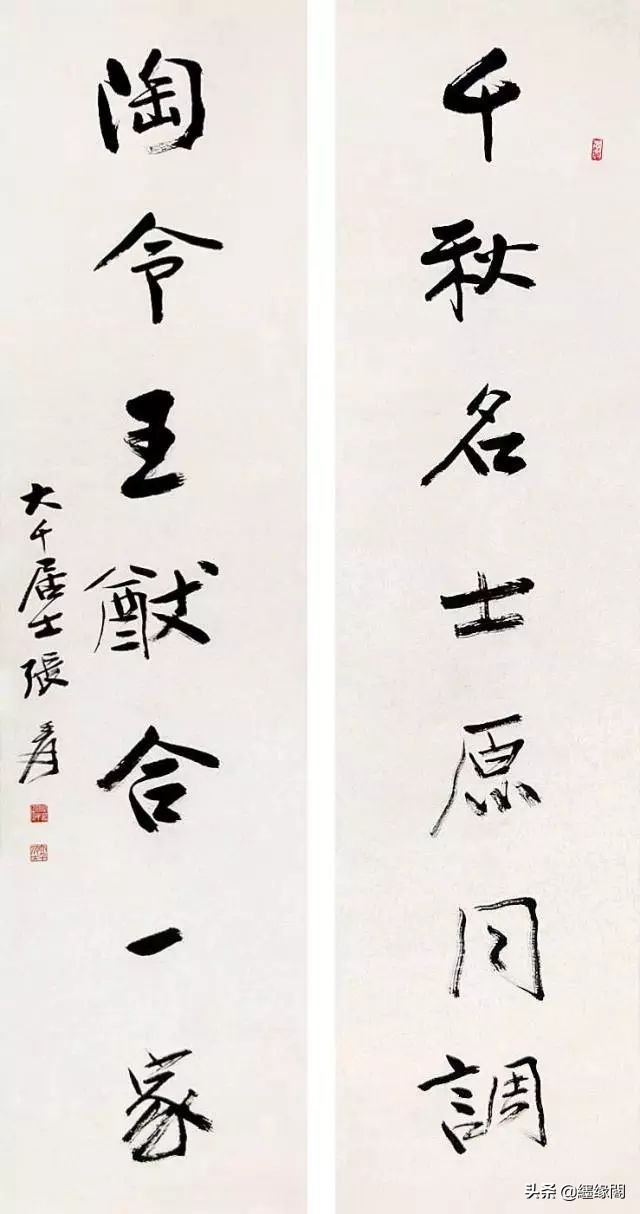 千秋名士原同調
陶令王猷合一家
大千居士張爰
头条 @纆缘閣